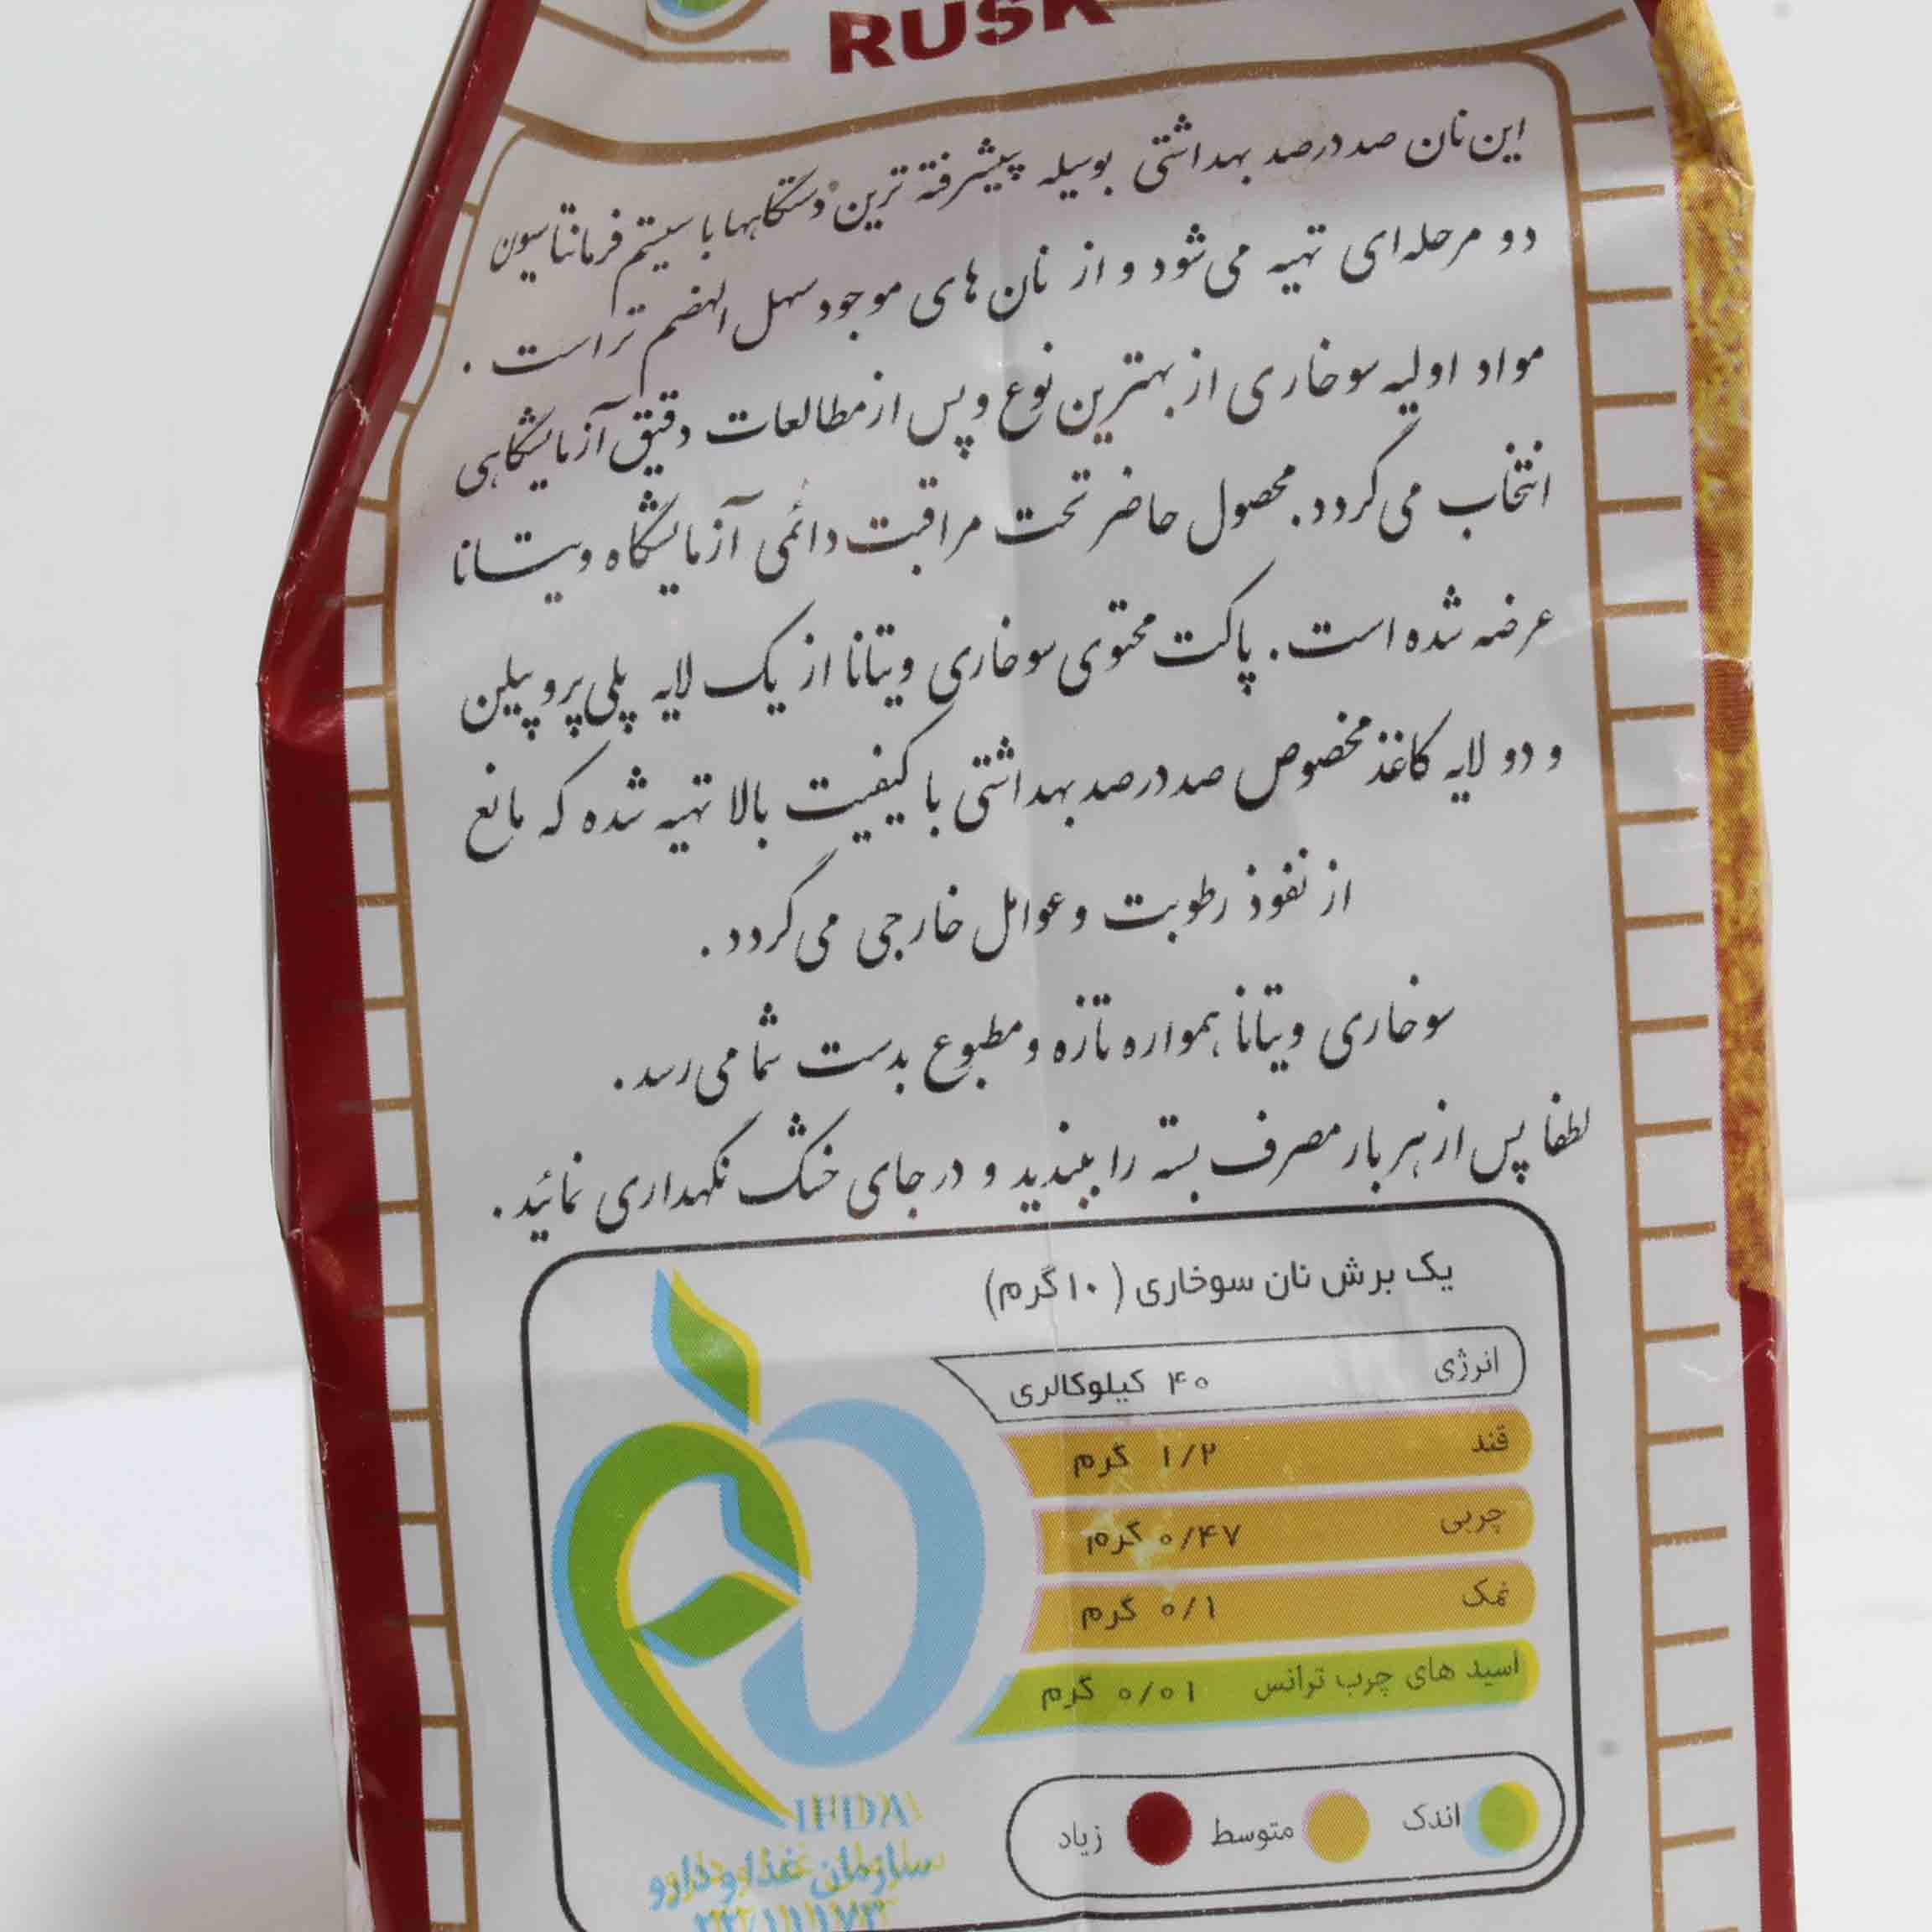 RUSK
این نان صد درصد بهداشتی بوسیله پیشرفته ترین دستگاهها با سیستم فرمانتاسیون
دو مرحله‌ای تهیه می‌شود و از نان های موجود سهل الهضم تر است .
مواد اولیه سوخاری از بهترین نوع و پس از مطالعات دقیق آزمایشگاهی
انتخاب می‌گردد. محصول حاضر تحت مراقبت دائمی آزمایشگاه ویتانا
عرضه شده است. پاکت محتوی سوخاری ویتانا از یک لایه پلی‌پروپیلن
و دو لایه کاغذ مخصوص صد درصد بهداشتی با کیفیت بالا تهیه شده که مانع
از نفوذ رطوبت و عوامل خارجی می‌گردد .
سوخاری ویتانا همواره تازه و مطبوع بدست شما می‌رسد .
لطفا پس از هر بار مصرف بسته را ببندید و در جای خشک نگهداری نمائید .
یک برش نان سوخاری (۱۰ گرم)
انرژی ۴۰ کیلوکالری
قند ۱/۲ گرم
چربی ۰/۴۷ گرم
نمک ۰/۱ گرم
اسید های چرب ترانس ۰/۰۱ گرم
اندک متوسط زیاد
IFDA
سازمان غذا و دارو